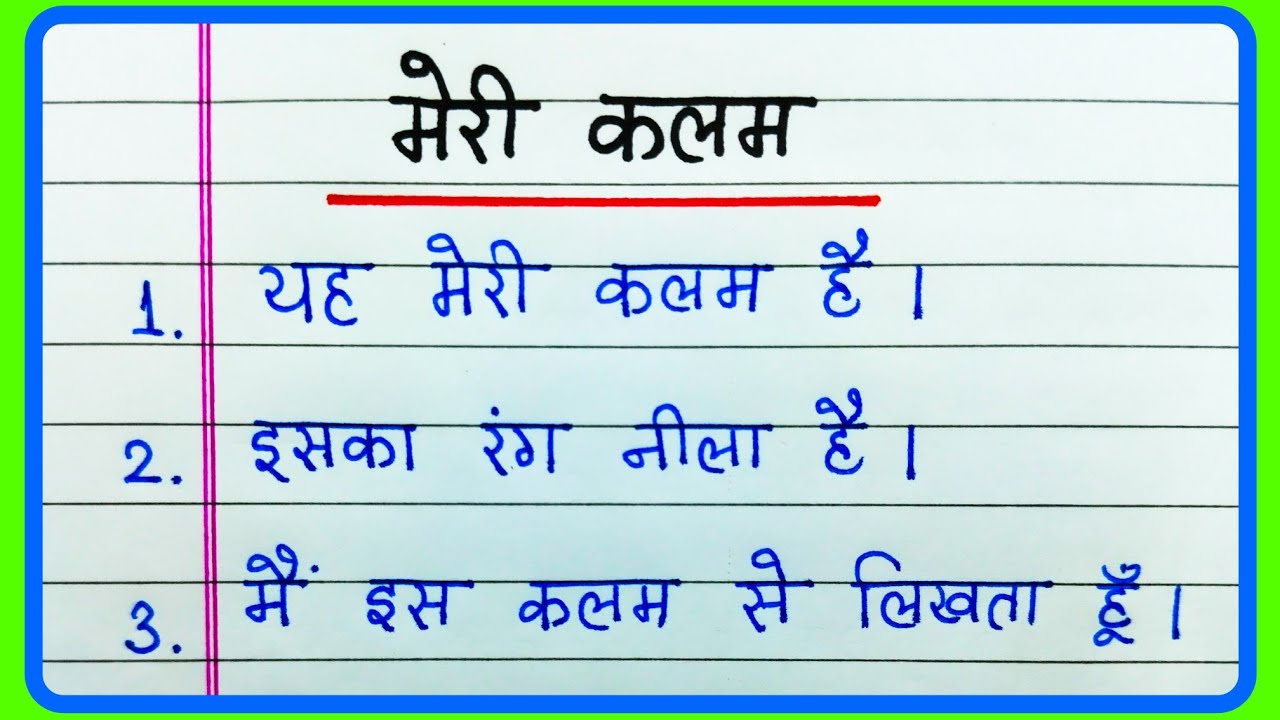 मेरी कलम
1. यह मेरी कलम है।
2. इसका रंग नीला है।
3. मैं इस कलम से लिखता हूँ।